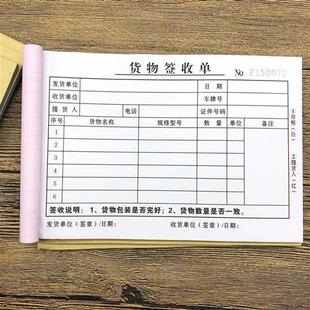 货物签收单 No 2150072
发货单位 日期
收货单位 车牌号
提货人 电话 证件号码
序号 货物名称 规格型号 数量 单位 备注
1
2
3
4
5
6
签收说明：1、货物包装是否完好；2、货物数量是否一致。
发货单位（签章）/日期： 收货单位（签章）/日期：
1存根（白）
2提货人（红）